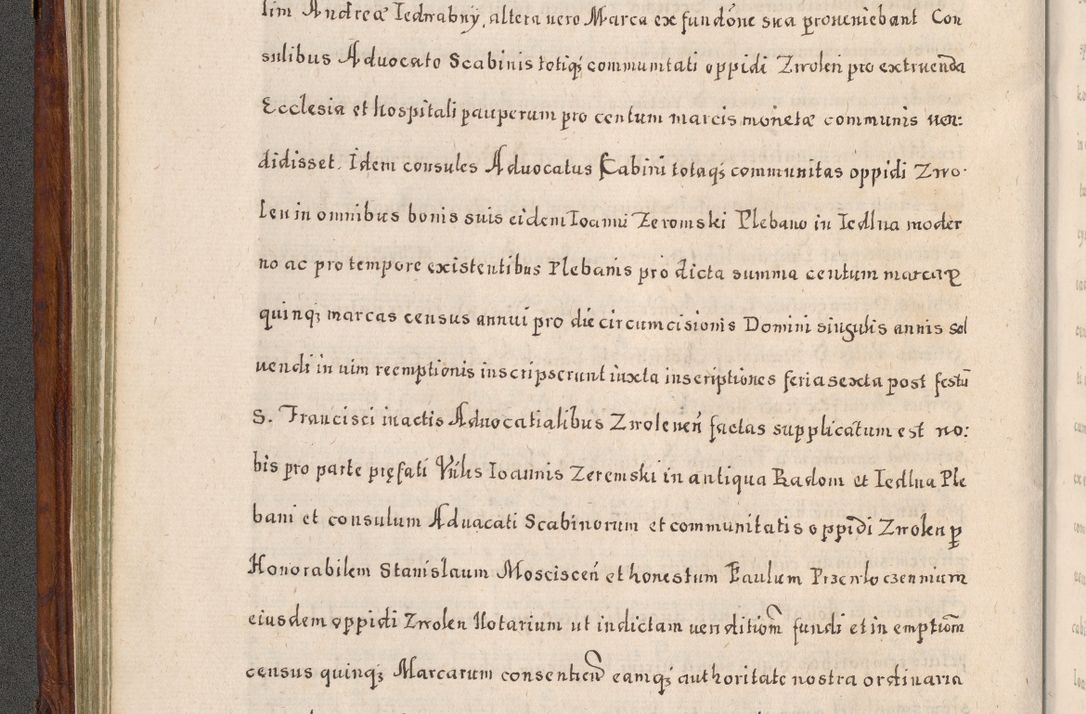 lim Andreæ Iedwabny, altera uero Marca ex fundone sua proueniebant Con
sulibus Aduocato Scabinis totiq; communitati oppidi Zwolen pro extruenda
Ecclesia et hospitali pauperum pro centum marcis monetæ communis uen:
didisset. Idem consules Aduocatus Scabini totaq; communitas oppidi Zwo
len in omnibus bonis suis eidem Ioanni Zeromski Plebano in Iedlna moder
no ac pro tempore existentibus Plebanis pro dicta summa centum marcarꝝ
quinq; marcas census annui pro die circumcisionis Domini singulis annis sol
uendi in uim reemptionis inscripserunt iuxta inscriptiones feria sexta post festū
S. Francisci in actis Aduocatialibus Zwolenen̄ factas supplicatum est no:
bis pro parte pręfati Vnlis Ioannis Zeremski in antiqua Radom et Iedlna Ple
bani et consulum Aduacati Scabinorum et communitatis oppidi Zwolen ꝑ
Honorabilem Stanislaum Mosciscen̄ et honestum Paulum Przewloczenmum
eiusdem oppidi Zwolen Notarium ut indictam uenditiom̄ fundi et in emptiom̄
census quinq; Marcarum consentien̄ eamq; authoritate nostra ordinaria